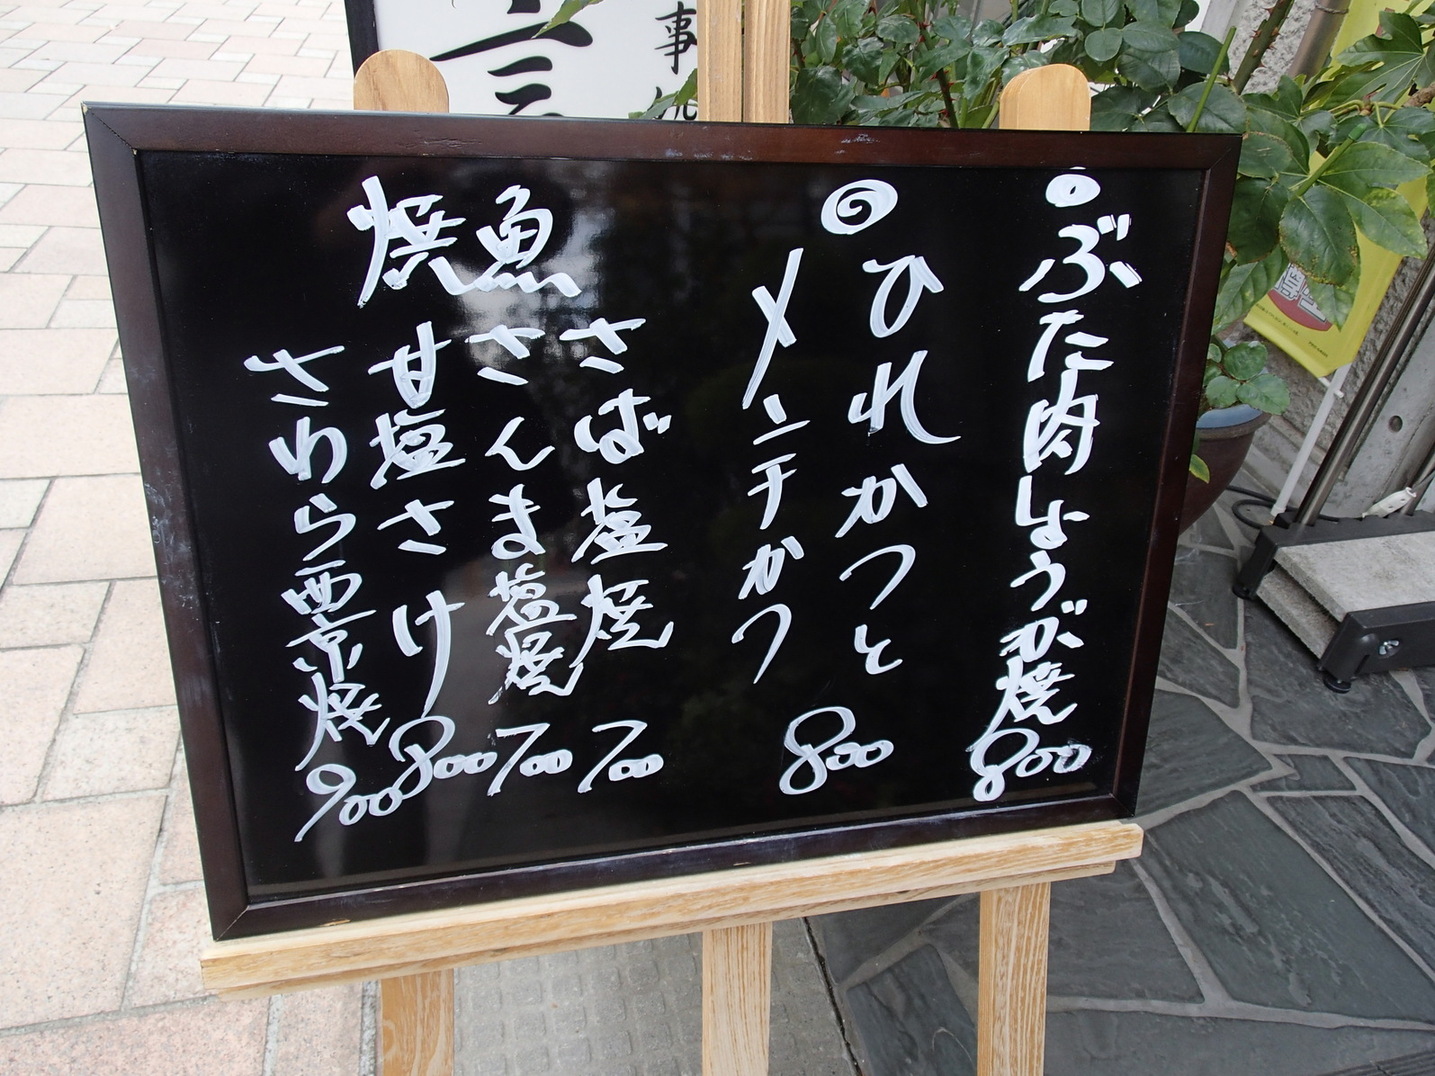 ぶた肉しょうが焼 800
ひれかつと
メンチかつ 800
焼魚
さば塩焼 700
さんま塩焼 700
甘塩さけ 800
さわら西京焼 900
事